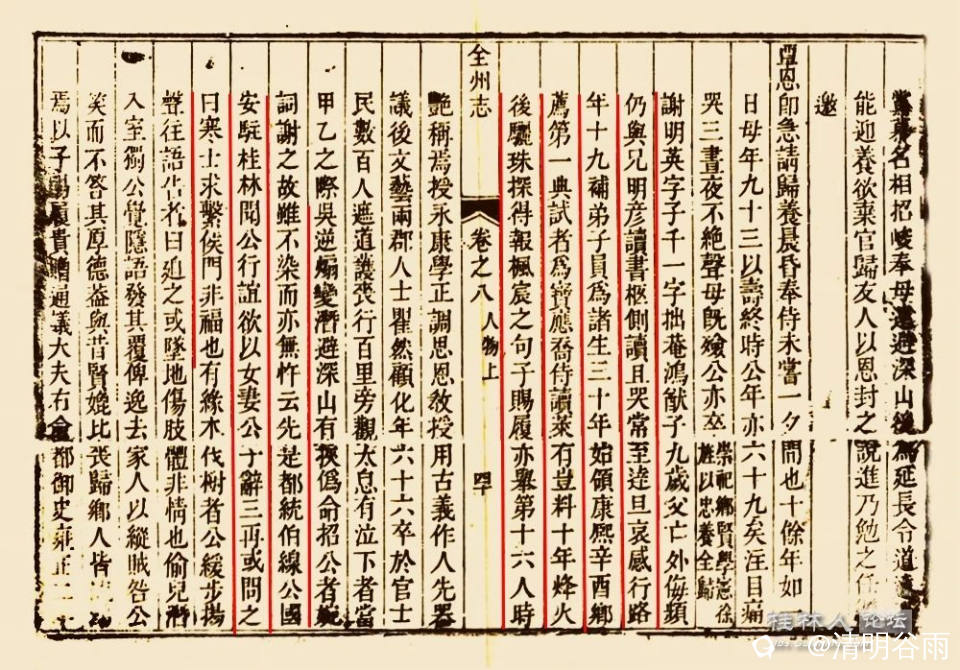 名相招峻奉母遷避深山後為延長令道遠
能迎養欲棄官歸友人以恩封之說進乃勉之任
邀
覃恩即急請歸養晨昏奉侍未嘗一夕間也十餘年如一
日母年九十三以壽終時公年亦六十九矣泣目痛
哭三晝夜不絕聲母既殮公亦卒
崇祀鄉賢學憲徐
旌以忠養全歸
謝明英字子千一字拙菴鴻猷子九歲父亡外侮頻
仍與兄明彥讀書柩側讀且哭常至達旦哀感行路
年十九補弟子員為諸生三十年始領康熙辛酉鄉
薦第一典試者為寶應喬侍讀萊有豈料十年烽火
後驪珠探得報楓宸之句子賜履亦舉第十六人時
全州志
卷之八 人物上
四十
艷稱焉授永康學正調思恩教授用古義作人先器
議後文藝兩郡人士瞿然顧化年六十六卒於官士
民數百人遮道護喪行百里旁觀太息有泣下者當
甲乙之際吳逆煽變潛避深山有挾偽命招公者婉
詞謝之故雖不染而亦無忤云先是都統伯線公國
安駐桂林聞公行誼欲以女妻公十辭三再或問之
曰寒士求繫侯門非福也有緣木伐樹者公緩步揚
聲往語告者曰迫之或墜地傷肢體非情也偷兒潛
入室獨公覺隱語發其覆俾逸去家人以縱賊咎公
笑而不答其厚德蓋與昔賢媲比喪歸鄉人皆
焉以子賜履貴贈通議大夫右僉都御史雍正二
桂林人论坛
@清明谷雨